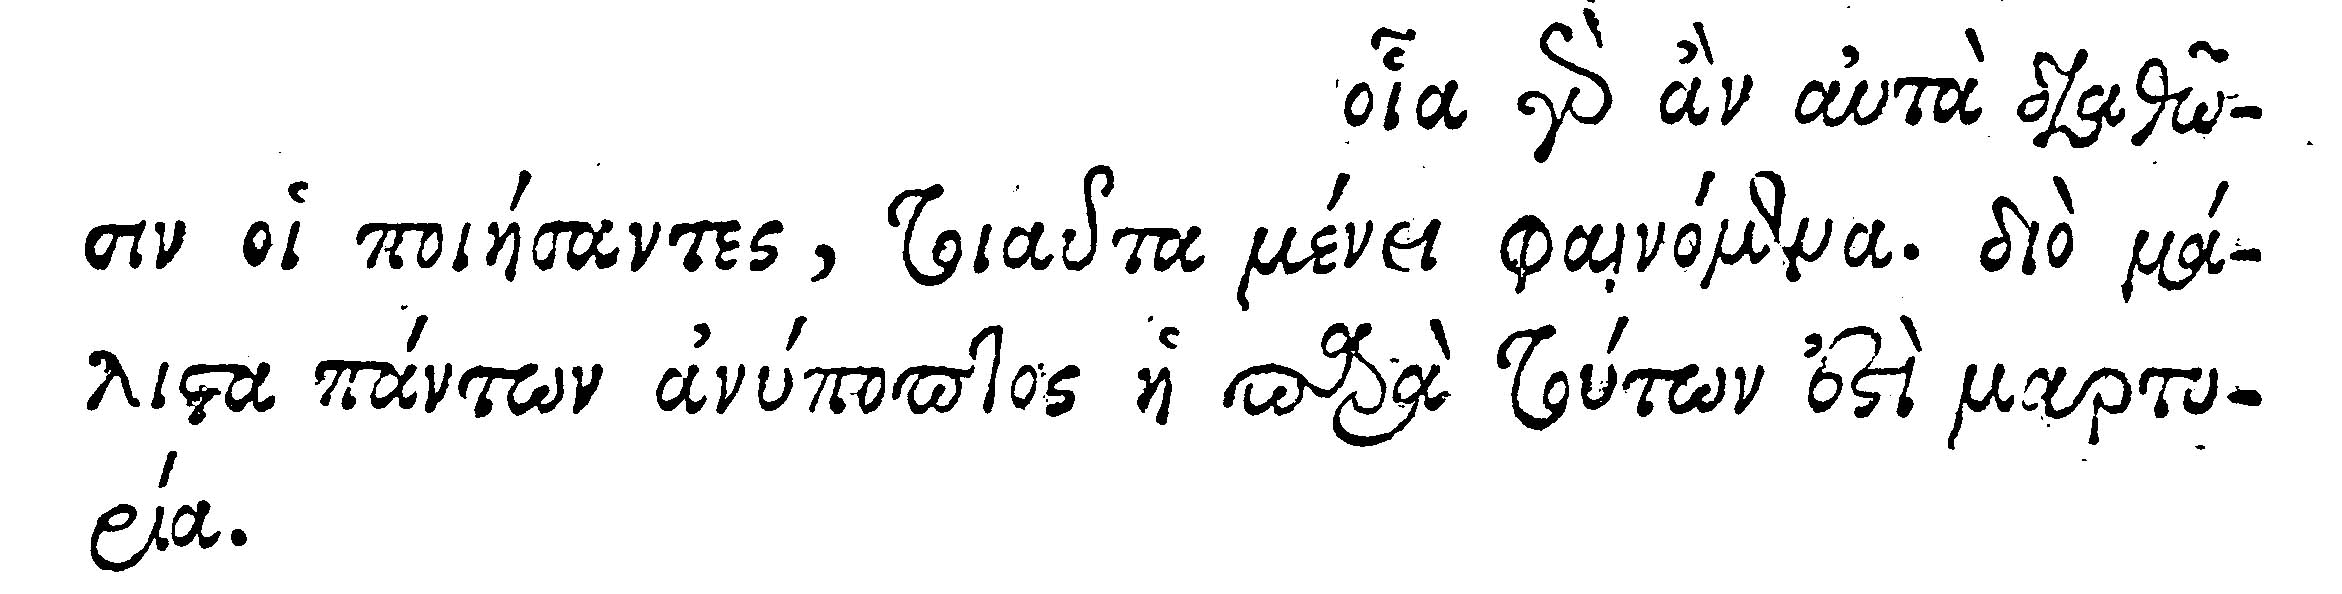 οἷα γὸ ἂν αὐτὰ διαθῶ-
σιν οἱ ποιήσαντες, τοιαῦτα μένει φαινόμενα. διὸ μά-
λιστα πάντων ἀνύποπτος ἡ παρὰ τούτων ἐστὶ μαρτυ-
ρία.